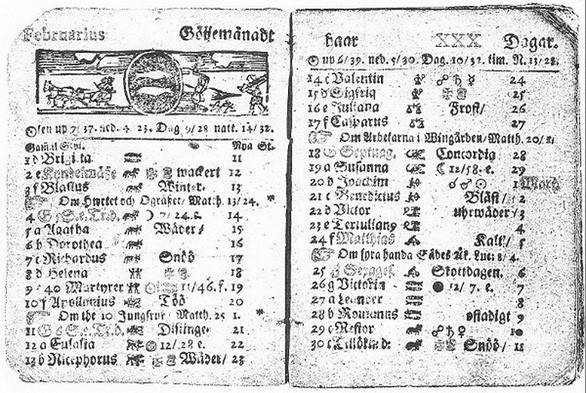 Februarius Göijemånadt
Solen up 7/37. ned. 4 23. Dag 9/28 natt. 14/32.
Gamul Styl. Nya St.
1 d Brigitta 11
2 e Kyndelmässe wackert 12
3 f Blasius Winter. 13
Om Hwetet och Ogräset/ Matth. 13/24.
4 G 5 S. e. Tr. D. 7/24. e. 14
5 a Agatha Wäder/ 15
6 b Dorothea 16
7 c Richardus Snöö 17
8 d Helena 18
9 e 40 Martyrer 11/46. f. 19
10 f Apollonius Töö 20
Om the 10 Jungfrur. Matth. 25 1.
11 G 6 S. e. Tr. D. Distinge 21
12 a Eulalia 12/28. e. 22
13 b Nicephorus Wäder/ 23
haar XXX Dagar.
up 6/39. ned. 5/30. Dag. 10/32. tim. N. 13/28.
14 c Valentin 24
15 d Sigfrid 25
16 e Juliana Frost/ 26
17 f Casparus 27
Om Arbetarna i Wingården/ Matth. 20/1.
18 G Septuag. Concordia 28
19 a Susanna 12/58. e. 29
20 b Joachim 1 Mart
21 c Benedictus Blåst/ 2
22 d Victor uhrwäder/ 3
23 e Tertulian 4
24 f Matthias Kalt/ 5
Om fyra handa Sädes Åk. Luc: 8/4.
25 G Sexages. Skottdagen. 6
26 g Victorin 12/7. e. 7
27 a Leander 8
28 b Romanus ostadigt 9
29 c Nestor 10
30 Snöö/ 11